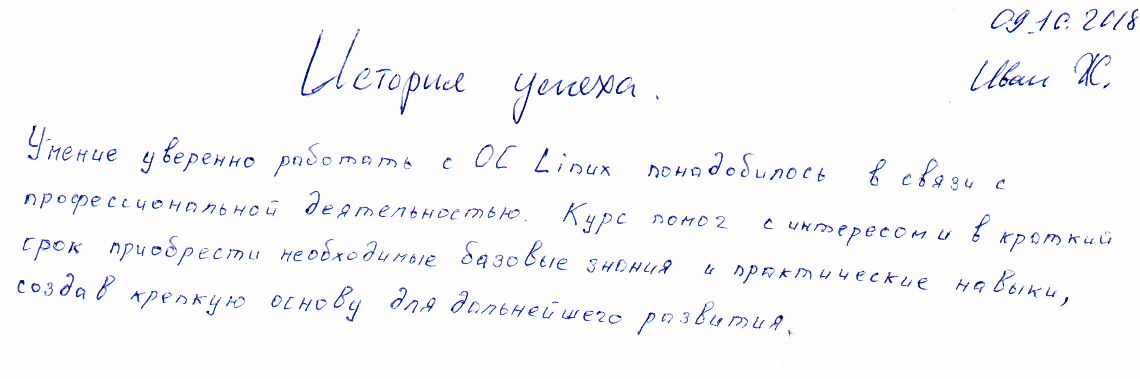 09.10.2018
Иван Ж.
История успеха.
Умение уверенно работать с ОС Linux понадобилось в связи с
профессиональной деятельностью. Курс помог с интересом и в краткий
срок приобрести необходимые базовые знания и практические навыки,
создав крепкую основу для дальнейшего развития.